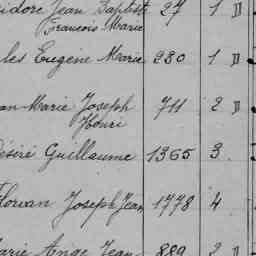 idore Jean Baptiste 27 1 D
François Marie
les Eugène Marie 230 1 D
an Marie Joseph 711 2 D
Henri
Désiré Guillaume 1365 3
Florian Joseph Jean 1778 4
arie Ange Jean 889 2 D